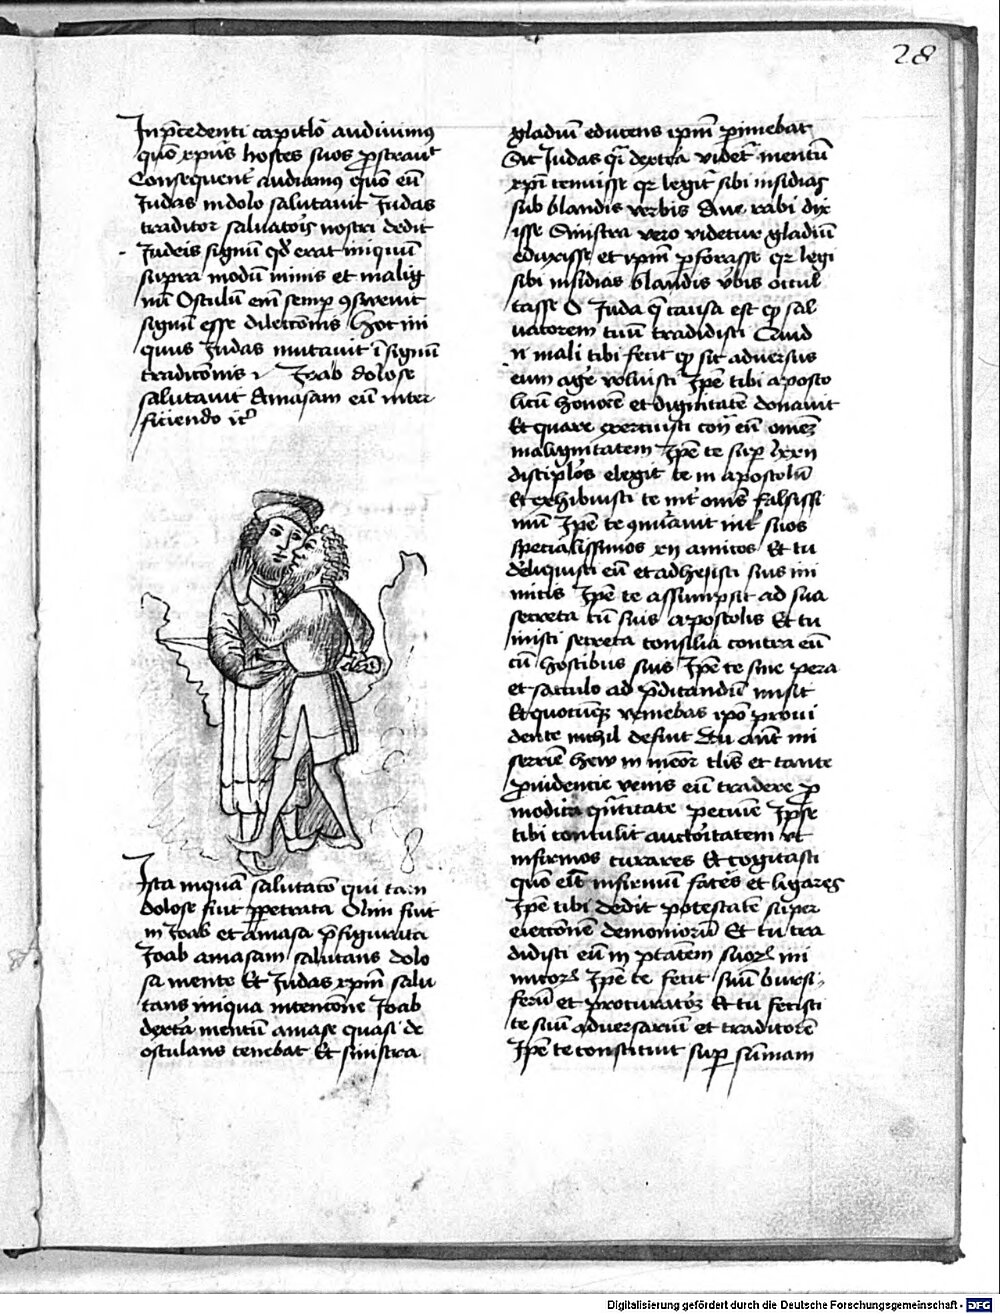 28
In p̄cedenti capitl̄o audiuimus
quō xpūs hostes suos ꝓstrauit
Consequent̄ audiamus quō eū
Judas in dolo salutauit Judas
traditor saluatoris nostri dedit
Judeis signū qd̄ erat iniquū
supra modū nimis et malig
nū Osculū em̄ semp ꝯsueuit
signū esse dilecc̄onis Hoc ini
quus Judas mutauit ī signū
tradic̄onis Joab dolose
salutauit Amasam eū inter
ficiendo
Ista inquā salutac̄o qui tam
dolose fuit ꝑpetrata Olim fuit
in Joab et Amasa p̄figurata
Joab amasam salutans dolo
sa mente Et Judas xpm̄ salu
tans iniqua intenc̄one Joab
dext̄a mentū amase quasi de
osculans tenebat Et sinistra
gladiū educens ipm̄ ꝑimebat
Sic Judas q̄i dext̄a videt̄ mentū
xpi tenuisse qr legit̄ sibi insidias
sub blandis verbis Aue rabi dix
isse Sinistra vero videtur gladiū
eduxisse et ipm̄ ꝑforasse qr legi
sibi insidias blandis v̄bis occul
tasse O Juda q̄ causa est ꝙ sal
uatorem tuū tradidisti Quid
n̄ mali tibi fecit ꝙ sic aduersus
eum agē voluisti Ip̄e tibi aposto
licū honorē et dignitatē donauit
Et quare exercuisti con̄ eū omēz
malignitatem Ip̄e te sup lxxii
disciplōs elegit te in apostolū
Et exhibuisti te int̄ om̄s falsissi
mū Ip̄e te ꝯnūauit int̄ suos
specialissimos xii amicos Et tu
deliquisti eū et adhesisti suis ini
micis Ip̄e te assumpsit ad sua
secreta cū suis apostolis Et tu
inisti secreta consilia contra eū
cū hostibus suis Ip̄e te sine pera
et sacculo ad p̄dicandū misit
Et quocūqz veniebas ip̄o proui
dente nichil defuit
heu tl̄is et tante
ꝓuidencie venis eū tradere ꝓ
modica qn̄titate pecunie Ip̄se
tibi contulit auctoritatem vt
infirmos curares Et cogitasti
quō eū infirmū facēs et ligares
Ip̄e tibi dedit potestatē super
eiecc̄onē demoniorū Et tu tra
didisti eū in p̄tatēm suor̄ ini
micor̄ Ip̄e te fecit suū bursi
ferū et procuratorē Et tu fecisti
te suū aduersariū et traditorē
Ip̄e te constituit sup sūmam
Digitalisierung gefördert durch die Deutsche Forschungsgemeinschaft - DFG